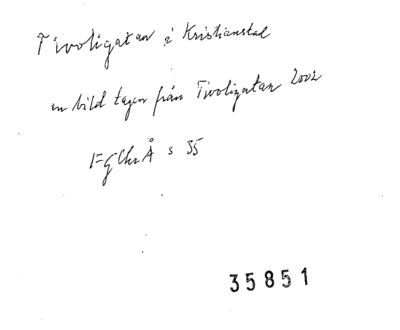 Tivoligatan i Kristianstad
en bild tagen från Tivoligatan 2002
s 35
35851